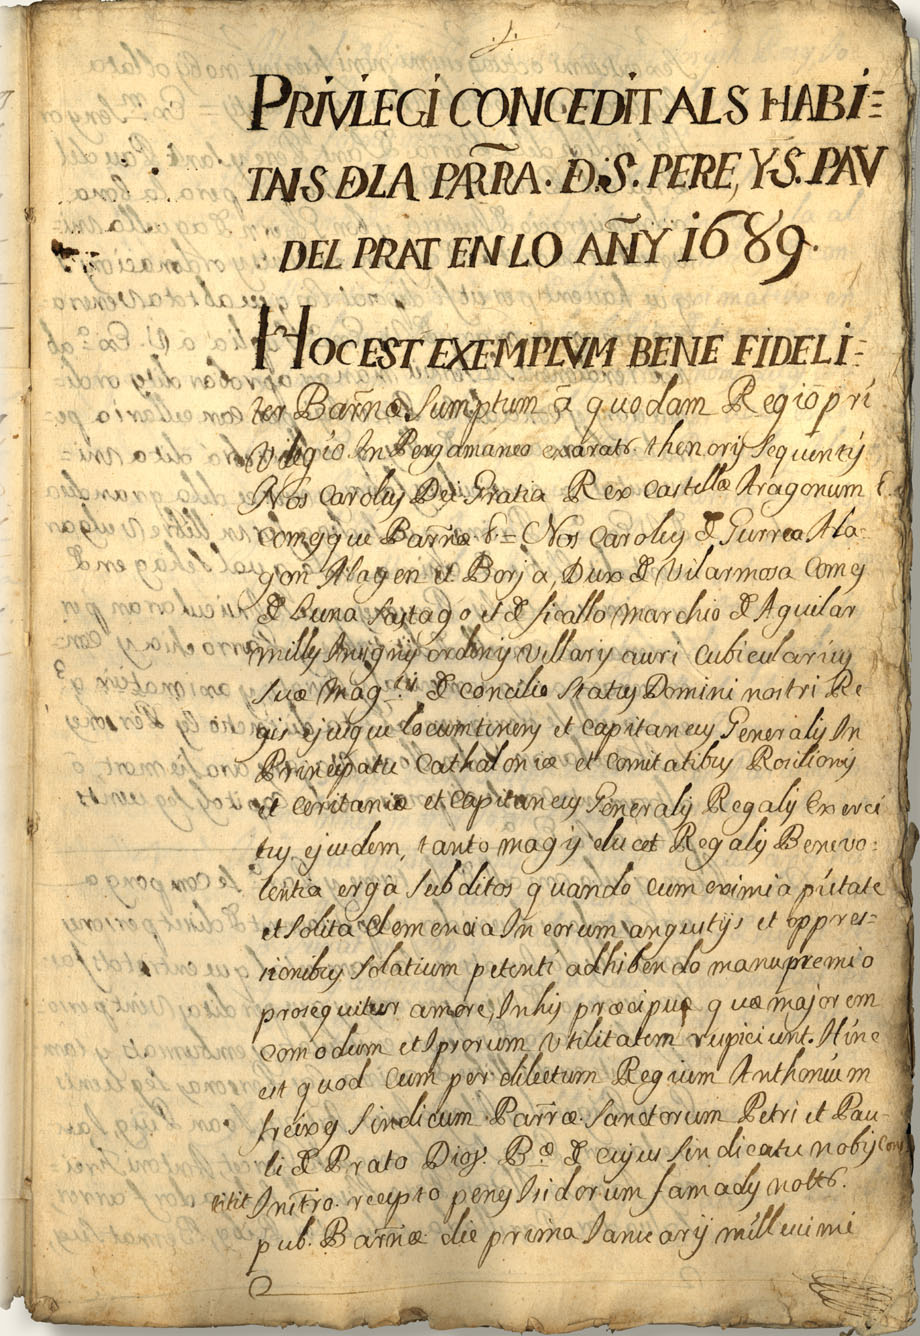 PRIVLEGI CONCEDIT ALS HABI=
TANS DLA PAR̃RA. D.S. PERE, Y.S. PAV
DEL PRAT EN LO AÑY 1689.
HOC EST EXEMPLVM BENE FIDELI=
ter Barñæ sumptum ã quodam Regiõ pri
vilegio In Bergamineo exarato thenorij sequentij
Nos Caroluy Dei Gratia Rex Castellæ Aragonum
Comeyque Barñæ &= Nos Caroluy D Gurrea Ala-
gon Alagen et Borja, Dux D Vilarmosa Comy
D Luna Sastago et D ficallo Marchio D Aguilar
milly Insignij ordinij villarij auri Cubiculariuy
Suæ Mag.tis D concilio Statuy Domini nostri Re
gis ejuque locumtineny et capitaneuy Generalij In
Principatu Cathaloniæ et comitatibuy Rosilionij
et Ceritaniæ et Capitaneuy Generalij Regalij Exerci
tuy ejuidem, tanto magij elucet Regalij Benevo=
lentia erga subditos quando cum eximia pietate
et solita Clemencia In eorum angustijs et oppres=
sionibuy solatium petenti adhibendo manu premio
prosequitur amore, In hij præcipuæ quæ majorem
comodum et Iprorum Vtilitatem rupiciunt. Hinc
est quod cum per dilectum Regium Anthonium
freixey Sindicum Parræ. Sanctorum Petri et Pau-
li D Prato Dioy. B.e D cujus sindicatu nobij Cons
titit Inst̃ro. recepto peney Isidorum famady nott̃s.
pub. Barñæ die prima Ianuarij millecimi